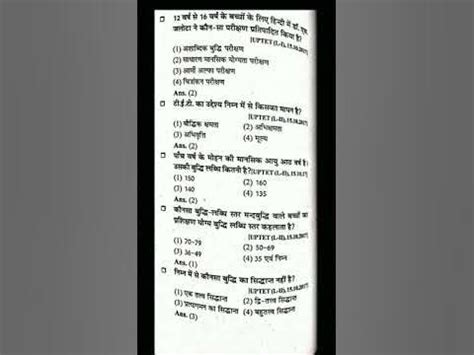 □ 12 वर्ष से 16 वर्ष के बच्चों के लिए हिन्दी में डॉ. एस.
जलोटा ने कौन-सा परीक्षण प्रतिपादित किया है?
[UPTET (L-I), 15.10.2017]
(1) अशाब्दिक बुद्धि परीक्षण
(2) साधारण मानसिक योग्यता परीक्षण
(3) आर्मी अल्फा परीक्षण
(4) चित्रांकन परीक्षण
Ans. (2)
□ टी.ई.टी. का उद्देश्य निम्न में से किसका मापन है?
[UPTET (L-II), 15.10.2017]
(1) बौद्धिक क्षमता (2) अभिक्षमता
(3) अभिवृत्ति (4) मूल्य
Ans. (2)
□ पाँच वर्ष के मोहन की मानसिक आयु आठ वर्ष है।
उसकी बुद्धि लब्धि कितनी है? [UPTET (L-II), 15.10.17]
(1) 150 (2) 160
(3) 140 (4) 135
Ans. (2)
□ कौनसा बुद्धि-लब्धि स्तर मन्दबुद्धि वाले बच्चों का
प्रशिक्षण योग्य बुद्धि लब्धि स्तर कहलाता है?
[UPTET (L-II), 15.10.2017]
(1) 70-79 (2) 50-69
(3) 36-49 (4) 35 एवं निम्न
Ans. (1)
□ निम्न में से कौनसा बुद्धि का सिद्धान्त नहीं है?
[UPTET (L-II), 15.10.2017]
(1) एक तत्त्व सिद्धान्त (2) द्वि-तत्त्व सिद्धान्त
(3) प्रत्यागमन का सिद्धान्त (4) बहुतत्त्व सिद्धान्त
Ans. (3)